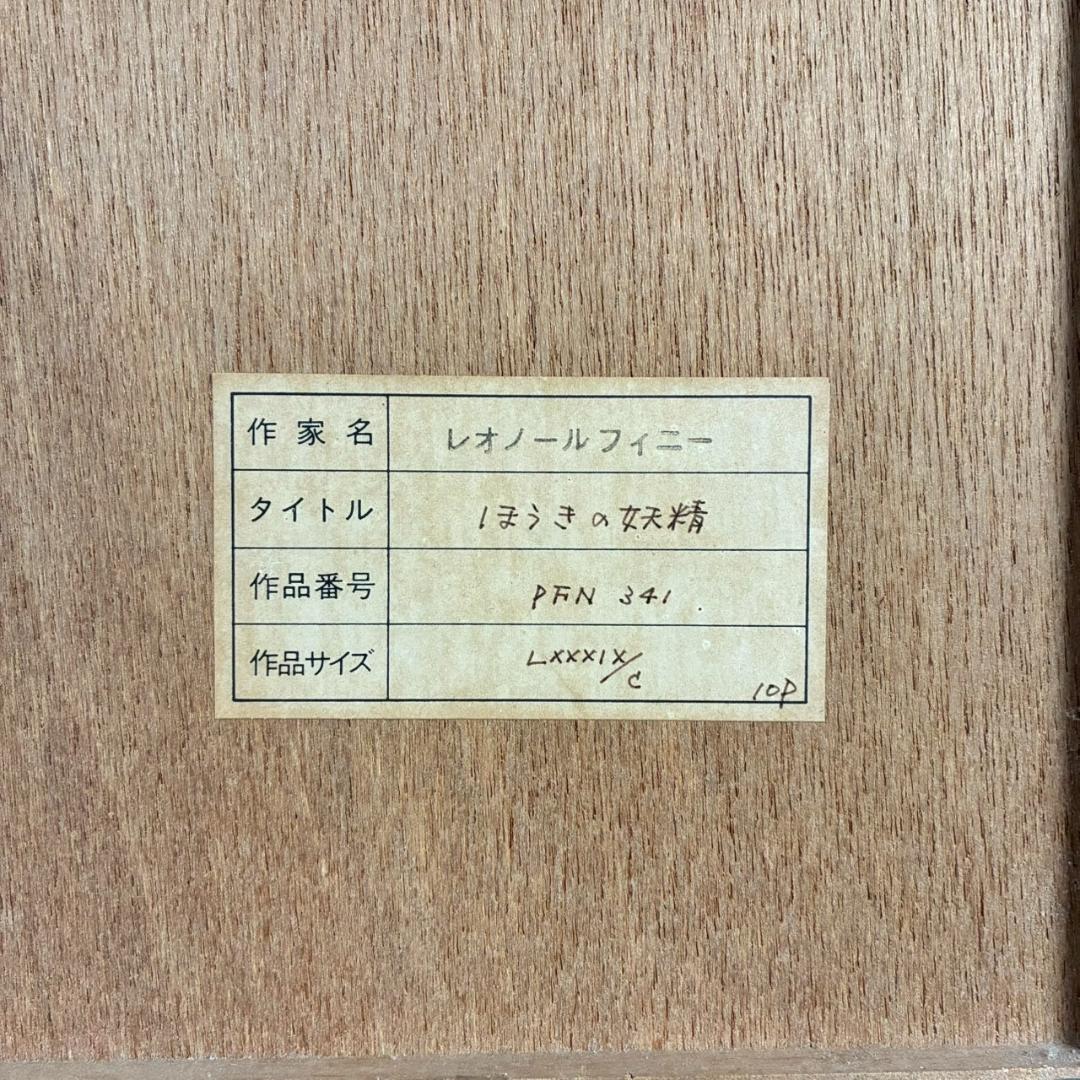 作家名 レオノールフィニー
タイトル ほうきの妖精
作品番号 PFN 341
作品サイズ LXXXIX/C
10P